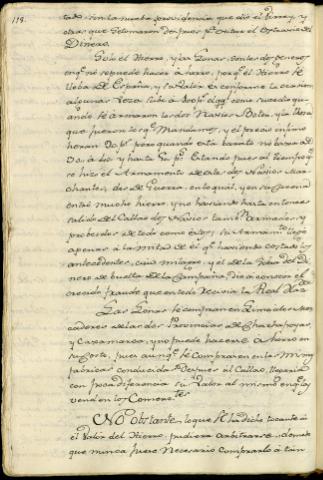 118.
tado con la nueba providencia que dio el Virrey, y
otras que se tomaron despues sobre el
Dinero.
Solo el Hierro, y las Lonas, son los dos generos
en que no se puede hacer ahorro, porque el Hierro se
lleba de España, y su Valor es conforme la ocasion,
algunas veces sube a como sucedio qu-
ando se armaron los dos Navios
que fueron los que Mandamos, y el precio infimo
heran pero quando esta barato no baxa de
y hasta estando pues al tiempo que
se hizo el Armamento de estos dos Navios Mar-
chantes, de Guerra, en los quales, y en su
entró mucho hierro, y no haviendo hasta entonces
salido del Callao dos Navios tambien Armados, y
probeidos de todo como estos, su llegó
apenas á la mitad de el que havian costado los
antecedentes, cuio milagro, y el de la del Di-
nero de buelta de la Campaña, dió á conocer el
crecido fraude que en todo recivia la Real
Las Lonas se compran en Lima a los Mer-
caderes de las dos Provincias de Chachapoyas,
y Caxamarca, y no puede hacerse Ahorro en
su Costo, pues aunque se compraran en las Mismas
fabricas conducidas despues al Callao, llegaria
con poca diferencia su Valor al mismo en que los
venden los Comerciantes.
No obstante lo que se ha dicho tocante á
el Valor del Hierro, pudiera arbitrarse de modo
que nunca fuese necesario comprarlo á tan